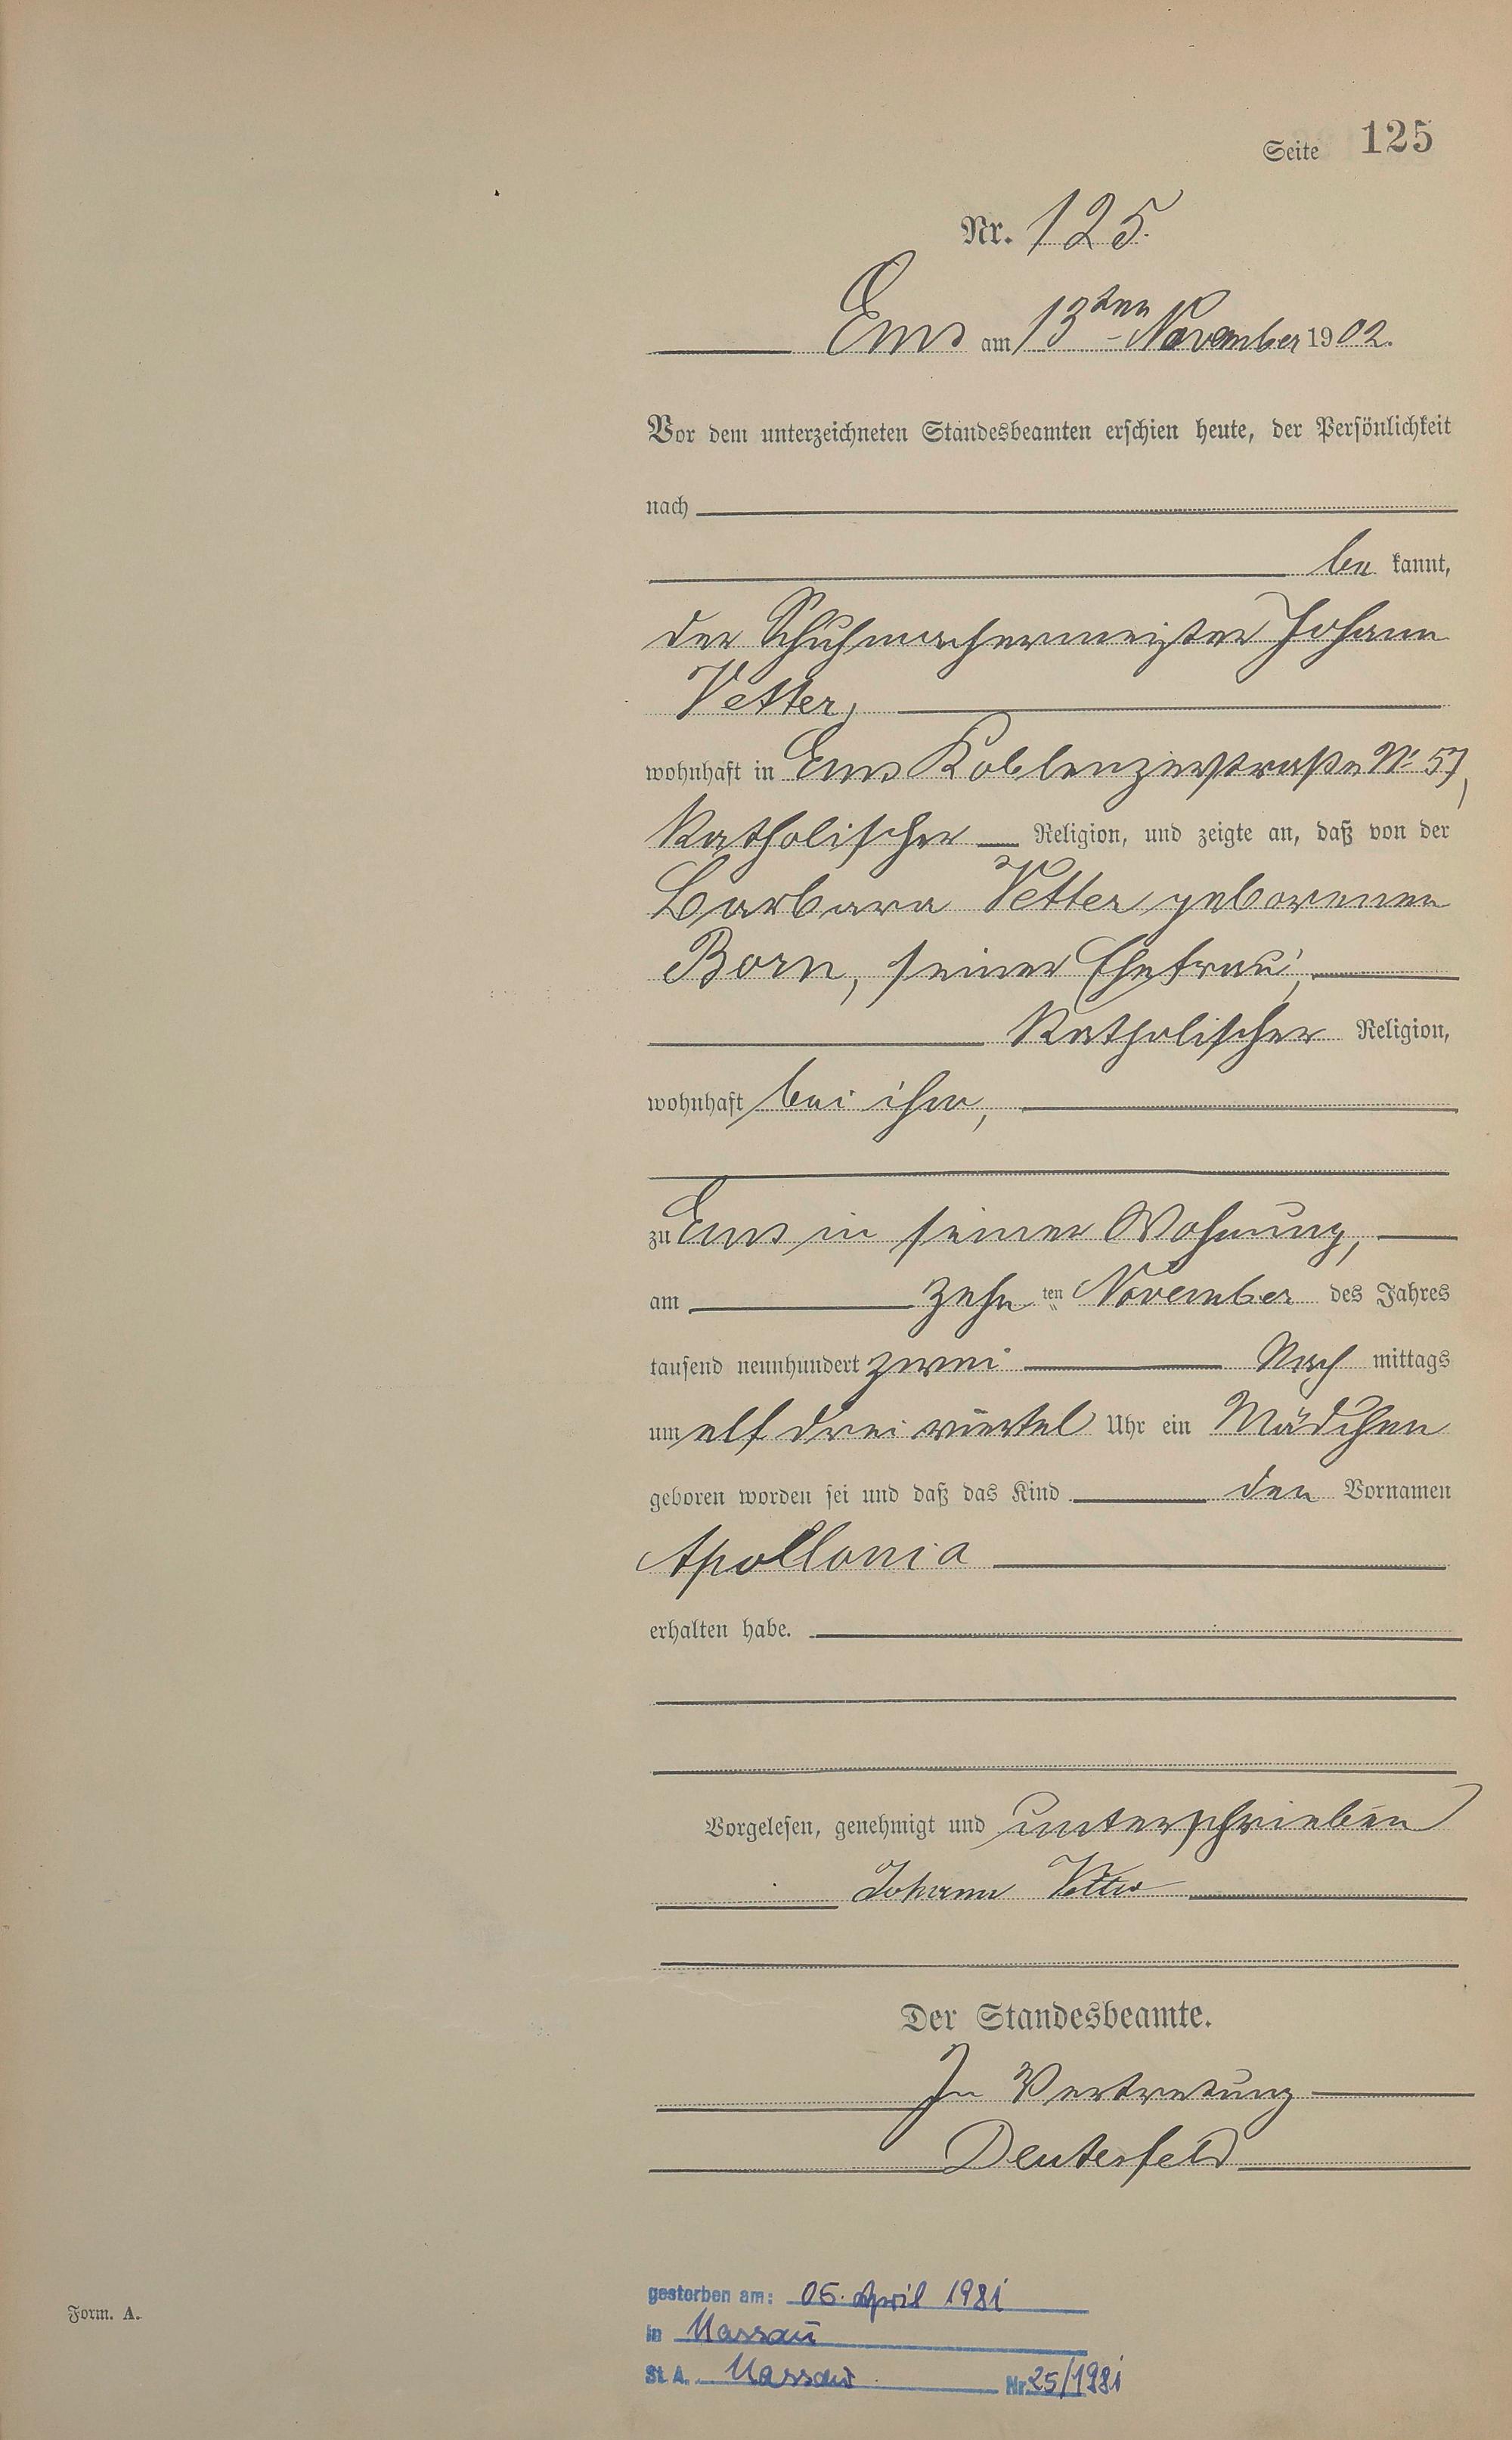 Seite 125
Nr. 125.
Ems am 13ten November 1902.
Vor dem unterzeichneten Standesbeamten erschien heute, der Persönlichkeit
nach
be kannt,
der Schuhmachermeister Johann
Vetter,
wohnhaft in Ems Koblenzerstraße Nr. 57,
katholischer Religion, und zeigte an, daß von der
Barbara Vetter geborenen
Born, seiner Ehefrau,
katholischer Religion,
wohnhaft bei ihm,
zu Ems in seiner Wohnung,
am zehn ten November des Jahres
tausend neunhundert zwei Nach mittags
um elf drei viertel Uhr ein Mädchen
geboren worden sei und daß das Kind den Vornamen
Apollonia
erhalten habe.
Vorgelesen, genehmigt und unterschrieben
Johann Vetter
Der Standesbeamte.
In Vertretung
Deuterfeld
gestorben am: 05. April 1981
in Nassau
St. A. Nassau Nr. 25/1981
Form. A.